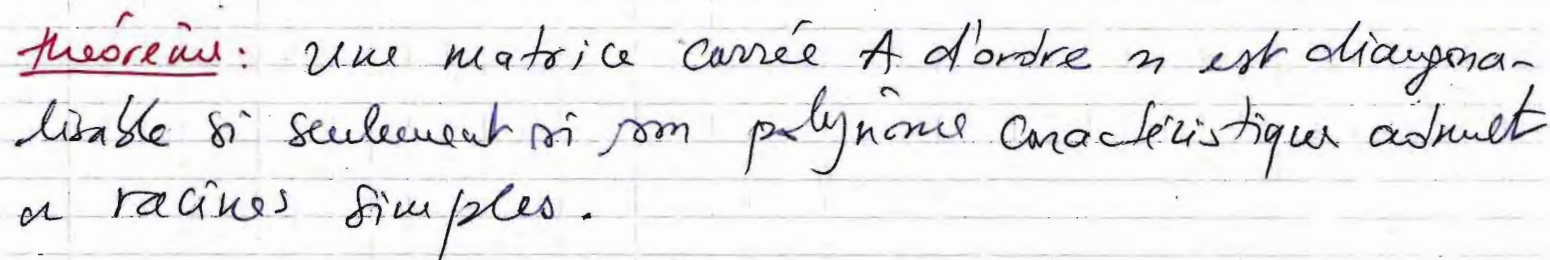 théorème: Une matrice carrée A d'ordre n est diangona-
lisable si seulement si son polynôme caractéristique admet
n racines simples.